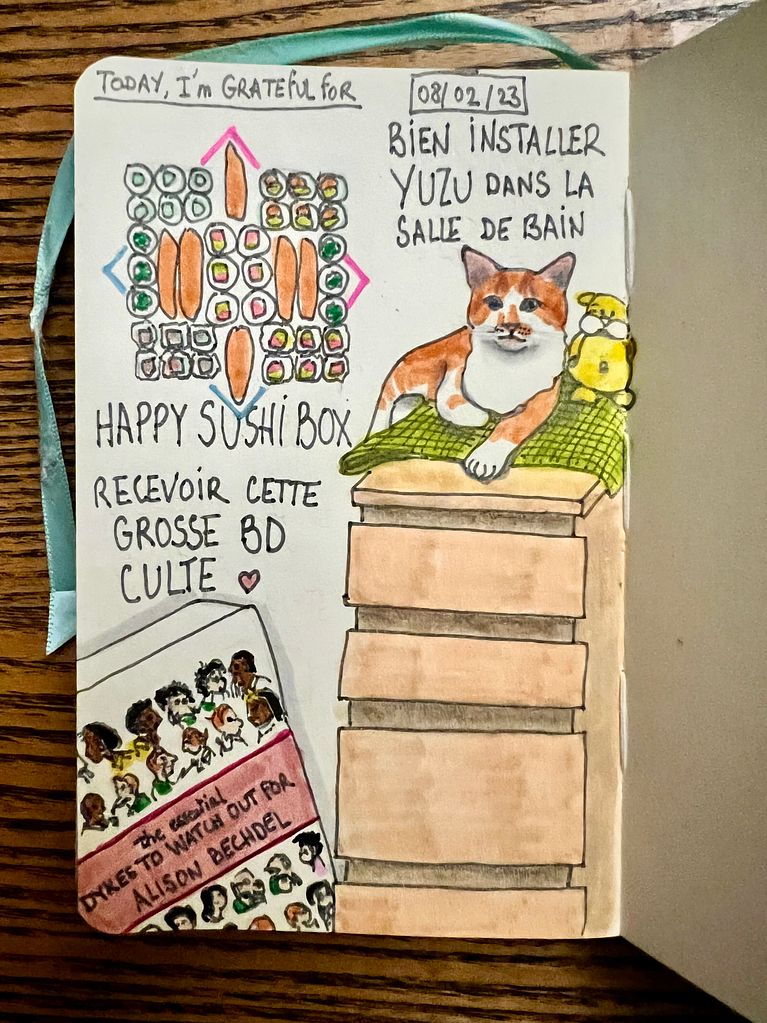 TODAY, I'm GRATEFUL FOR
08/02/23
BIEN INSTALLER
YUZU DANS LA
SALLE DE BAIN
HAPPY SUSHI BOX
RECEVOIR CETTE
GROSSE BD
CULTE
the essential
DYKES TO WATCH OUT FOR
ALISON BECHDEL